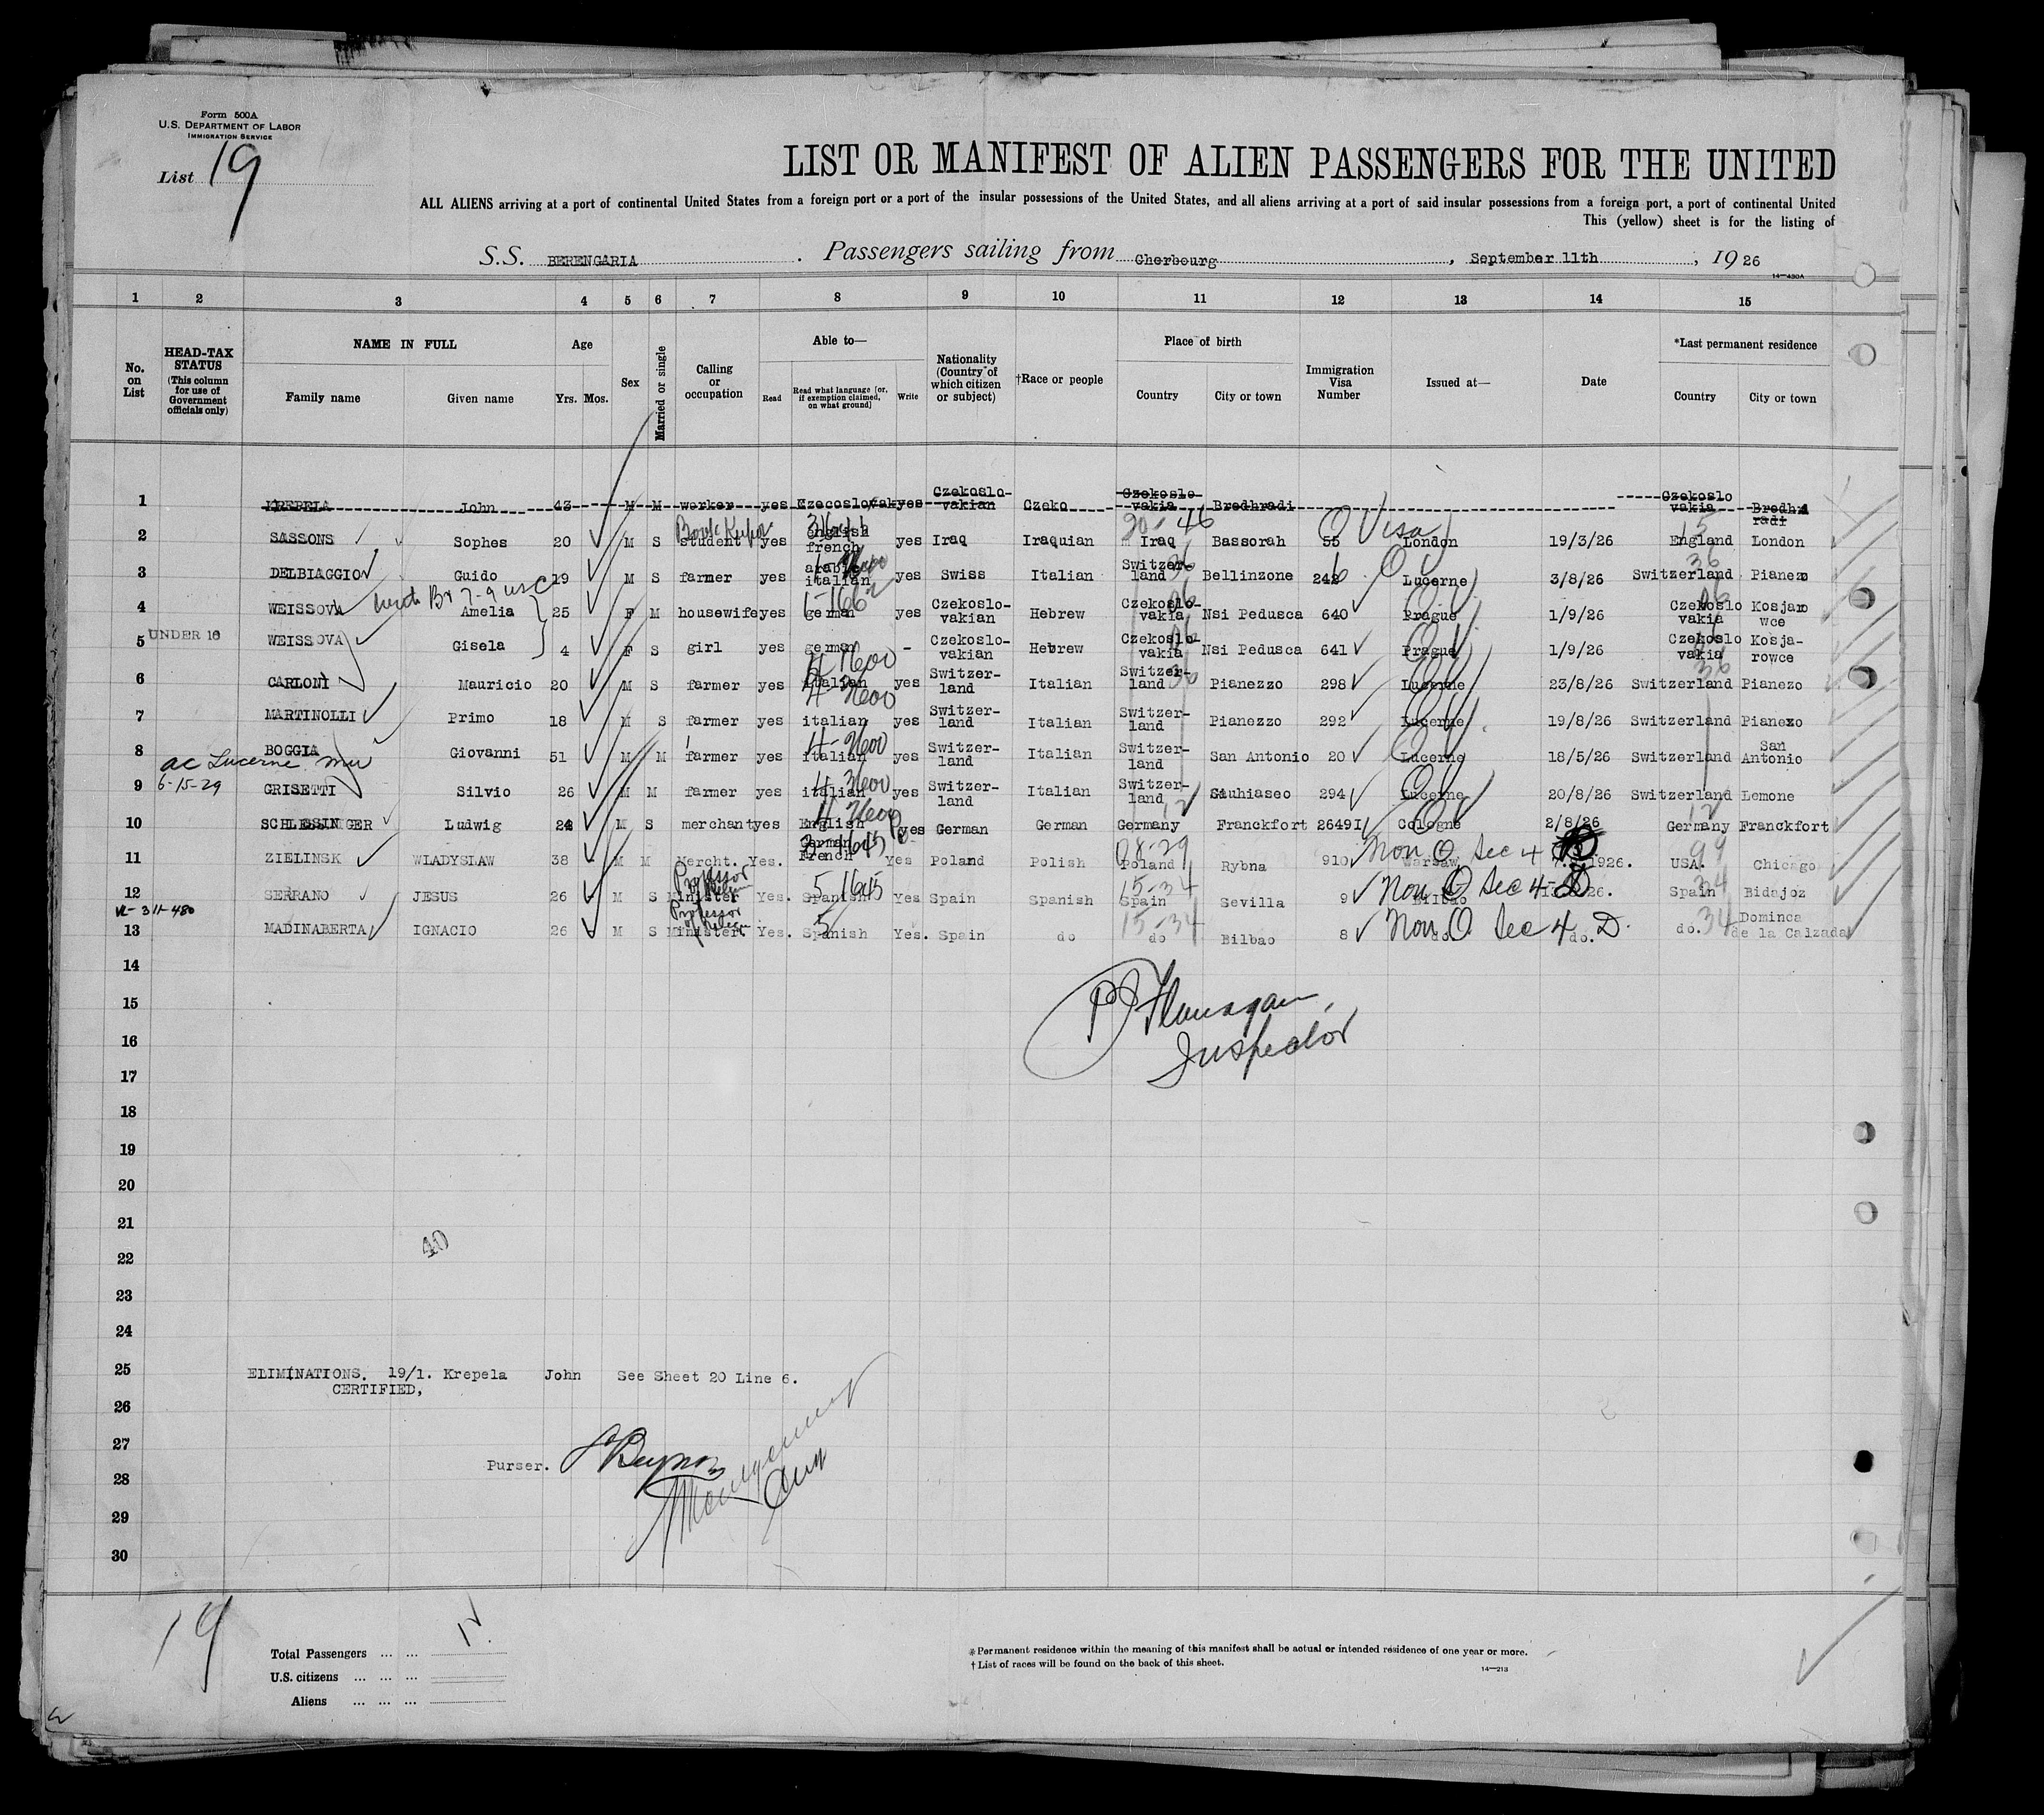 Form 500A
U.S. DEPARTMENT OF LABOR
IMMIGRATION SERVICE
List 19
LIST OR MANIFEST OF ALIEN PASSENGERS FOR THE UNITED
ALL ALIENS arriving at a port of continental United States from a foreign port or a port of the insular possessions of the United States, and all aliens arriving at a port of said insular possessions from a foreign port, a port of continental United
This (yellow) sheet is for the listing of
S.S. BERENGARIA. Passengers sailing from Cherbourg, September 11th, 19 26
14—430A
1 2 3 4 5 6 7 8 9 10 11 12 13 14 15
No. on List
HEAD-TAX STATUS (This column for use of Government officials only)
NAME IN FULL
Family name Given name
Age
Yrs. Mos.
Sex
Married or single
Calling or occupation
Able to—
Read
Read what language [or, if exemption claimed, on what ground]
Write
Nationality (Country of which citizen or subject)
†Race or people
Place of birth
Country City or town
Immigration Visa Number
Issued at—
Date
*Last permanent residence
Country City or town
1 KREPELA John 43 M M worker yes Czecoslovak yes Czekoslo-vakian Czeko Czekoslo-vakia Bredhradi Czekoslo vakia Bredhradi
20-46 O Visa 15
2 SASSONS Sophes 20 M S Book Keeper student yes english french arabic yes Iraq Iraquian Iraq Bassorah 55 London 19/3/26 England London
3 DELBIAGGIO Guido 19 M S farmer yes italian yes Swiss Italian Switzer-land Bellinzone 242 Lucerne 3/8/26 Switzerland Pianezo
4 WEISSOVA Amelia 25 F M housewife yes german yes Czekoslo-vakian Hebrew Czekoslo-vakia Nsi Pedusca 640 Prague 1/9/26 Czekoslo vakia Kosjarowce
5 UNDER 16 WEISSOVA Gisela 4 F S girl yes german - Czekoslo-vakian Hebrew Czekoslo-vakia Nsi Pedusca 641 Prague 1/9/26 Czekoslo vakia Kosja-rowce
6 CARLONI Mauricio 20 M S farmer yes italian yes Switzer-land Italian Switzer-land Pianezzo 298 Lucerne 23/8/26 Switzerland Pianezo
7 MARTINOLLI Primo 18 M S farmer yes italian yes Switzer-land Italian Switzer-land Pianezzo 292 Lucerne 19/8/26 Switzerland Pianezo
8 BOGGIA Giovanni 51 M M farmer yes italian yes Switzer-land Italian Switzer-land San Antonio 20 Lucerne 18/5/26 Switzerland San Antonio
ac Lucerne
6-15-29
9 GRISETTI Silvio 26 M M farmer yes italian yes Switzer-land Italian Switzer-land 294 Lucerne 20/8/26 Switzerland Lemone
10 SCHLESSINGER Ludwig 24 M S merchant yes English German French yes German German Germany Franckfort 26491 Cologne 2/8/26 Germany Franckfort
11 ZIELINSK WLADYSLAW 38 M M Mercht. Yes. Yes Poland Polish Poland Rybna 910 Warsaw Non Q Sec 4 1926. USA. Chicago
12 SERRANO JESUS 26 M S Minister Yes. Spanish Yes Spain Spanish Spain Sevilla 9 Bilbao Non Q Sec 4-D 26. Spain Bidajoz
VL-311-480
13 MADINABERTA IGNACIO 26 M S Minister. Yes. Spanish Yes. Spain do do Bilbao 8 do. Non Q Sec 4 D. do. do. Dominca de la Calzada
14
P J Flanagan,
15
Inspector
16
17
18
19
20
21
22
40
23
24
25 ELIMINATIONS. 19/1. Krepela John See Sheet 20 Line 6.
CERTIFIED,
26
27
Purser.
28
29
30
19
Total Passengers ... ... 12
U.S. citizens ... ... ...
Aliens ... ... ...
*Permanent residence within the meaning of this manifest shall be actual or intended residence of one year or more.
†List of races will be found on the back of this sheet.
14—213